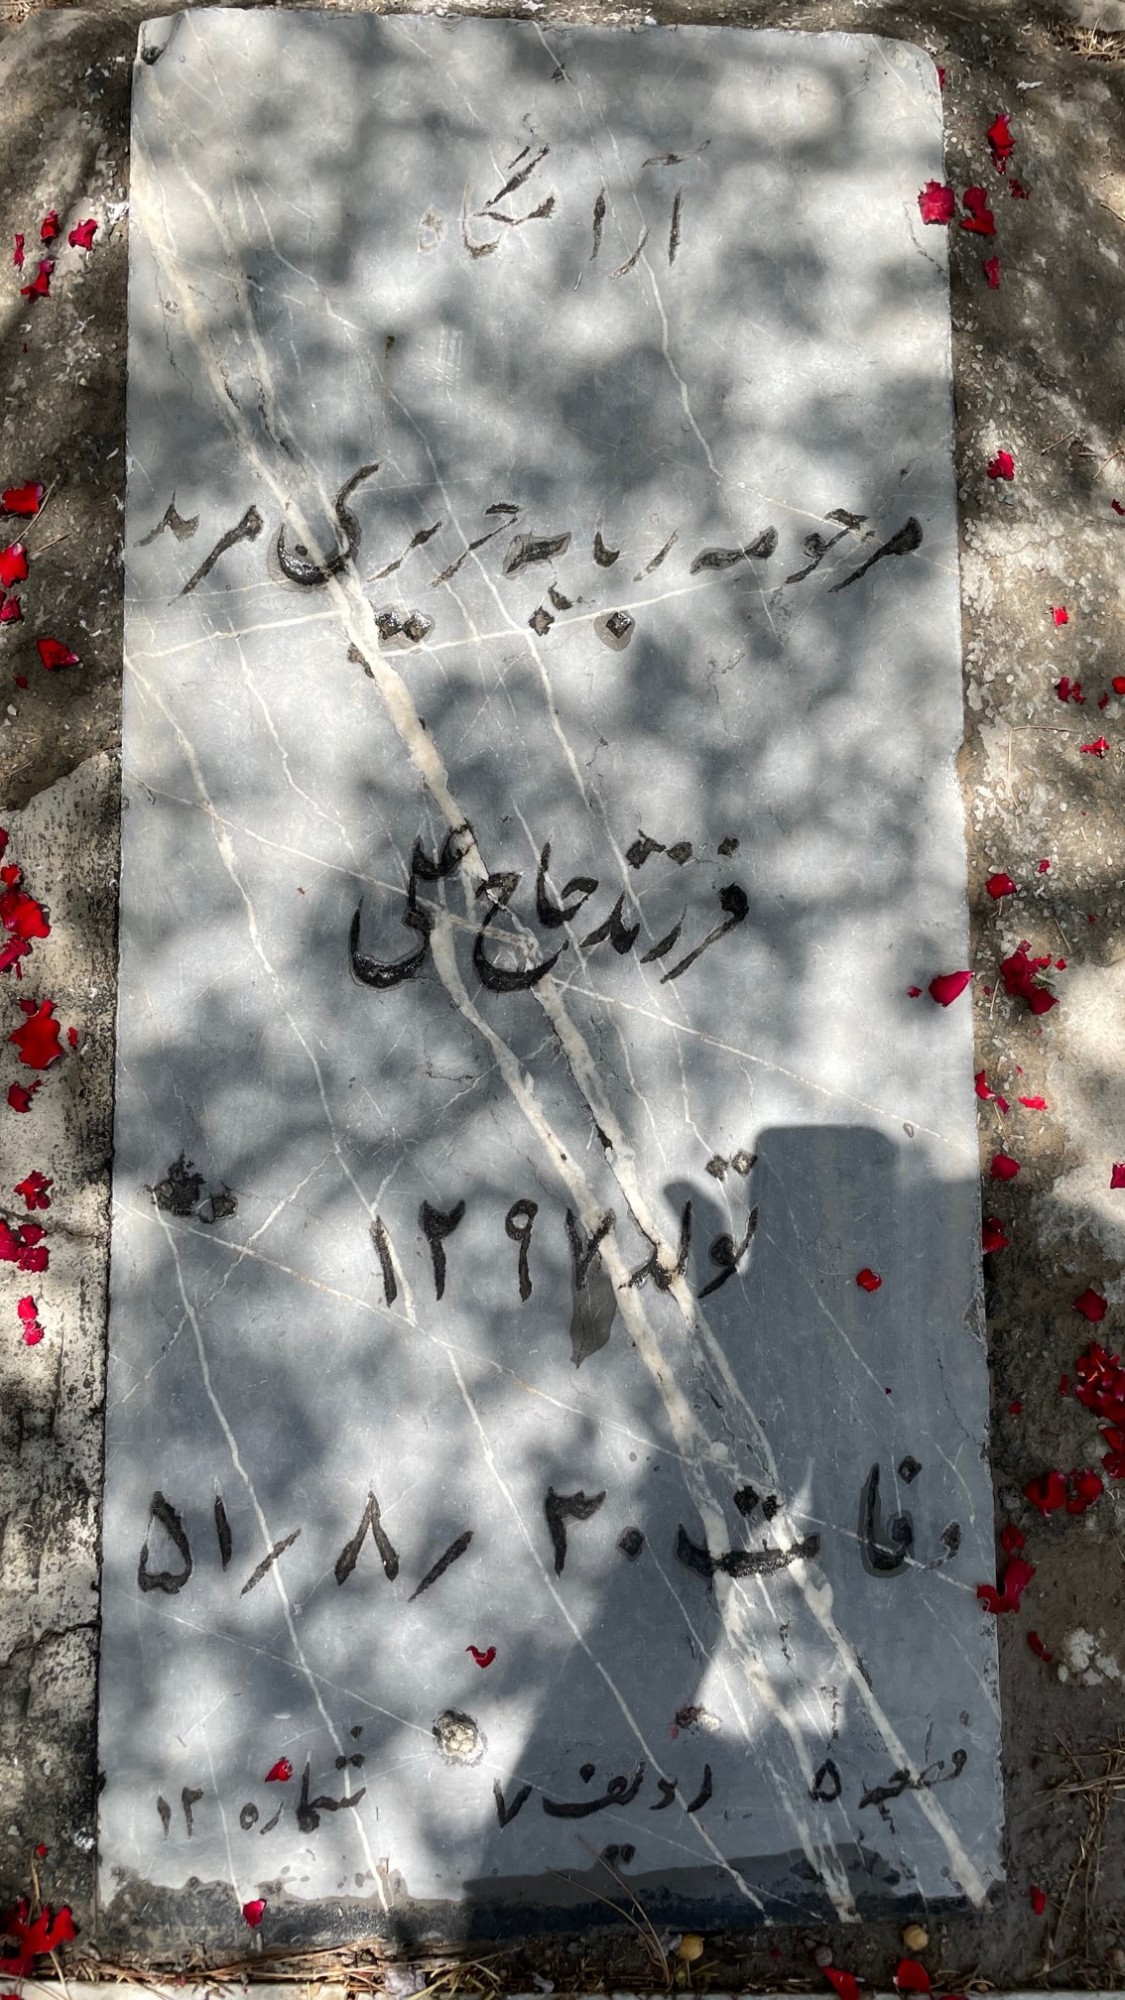 آرامگاه
مرحومه ربابه حریری مرند
فرزند حاج علی
تولد ۱۲۹۷
وفات ۳۰ / ۸ / ۵۱
قطعه ۵ ردیف ۷ شماره ۱۲